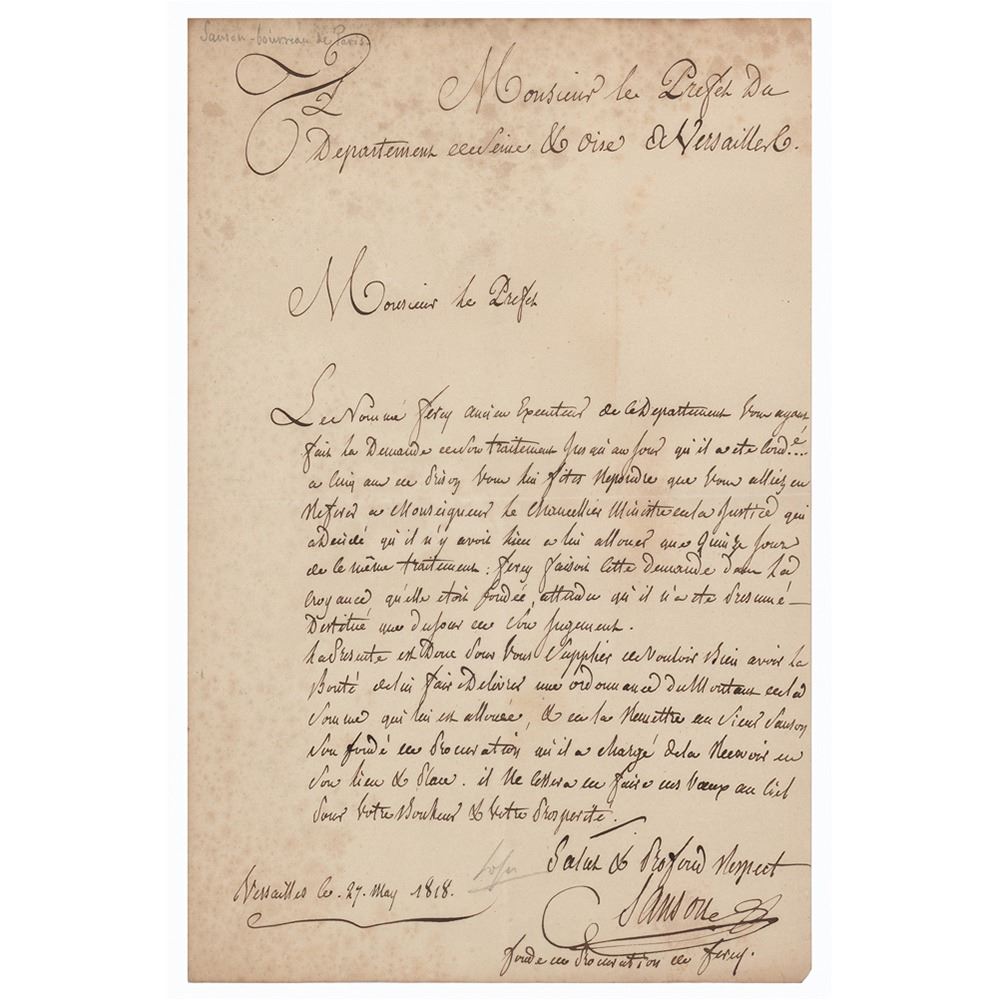 Sanson - bourreau de Paris
A Monsieur le Prefet Du
Departement de Seine & oise a Versailles.
Monsieur le Prefet
Le Nommé ferey ancien Executeur de ce Departement Vous ayant
fait la Demande de Son traitement jusqu'au jour qu'il a ete Cond.né
a Cinq ans de Prison Vous lui fites Repondre que Vous alliez en
Referer a Monseigneur le Chancellier Ministre de la Justice qui
a Decidé qu'il n'y avoit lieu a lui allouer que Quinze jours
de le même traitement ; ferey faisoit Cette demande dans La
Croyance qu'elle etoit fondée, attendu qu'il n'a ete Presumé
Destitué que du jour de Son jugement.
La Presente est Donc Pour Vous Supplier de Vouloir Bien avoir la
Bonté de lui faire Delivrer une ordonnance du Montant de la
Somme qui lui est allouée, & de la Remettre au Sieur Sanson
Son fondé de Procuration qu'il a chargé de la Recevoir en
Son lieu & Place. il Ne Cessera de faire des Vœux au Ciel
Pour Votre Bonheur & Votre Prosperité.
Salut & Profond Respect
Versailles le 27 May 1818.
Sanson
fondé de Procuration de ferey.